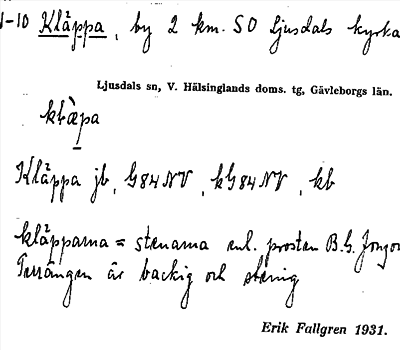 1-10 Kläppa, by 2 km. SO Ljusdals kyrka
Ljusdals sn, V. Hälsinglands doms. tg, Gävleborgs län.
Kläppa jb, G84NV, kG84NV, kb
kläpparna = stenarna enl. prosten B.G. Jonzon
Terrängen är backig och stenig
Erik Fallgren 1931.